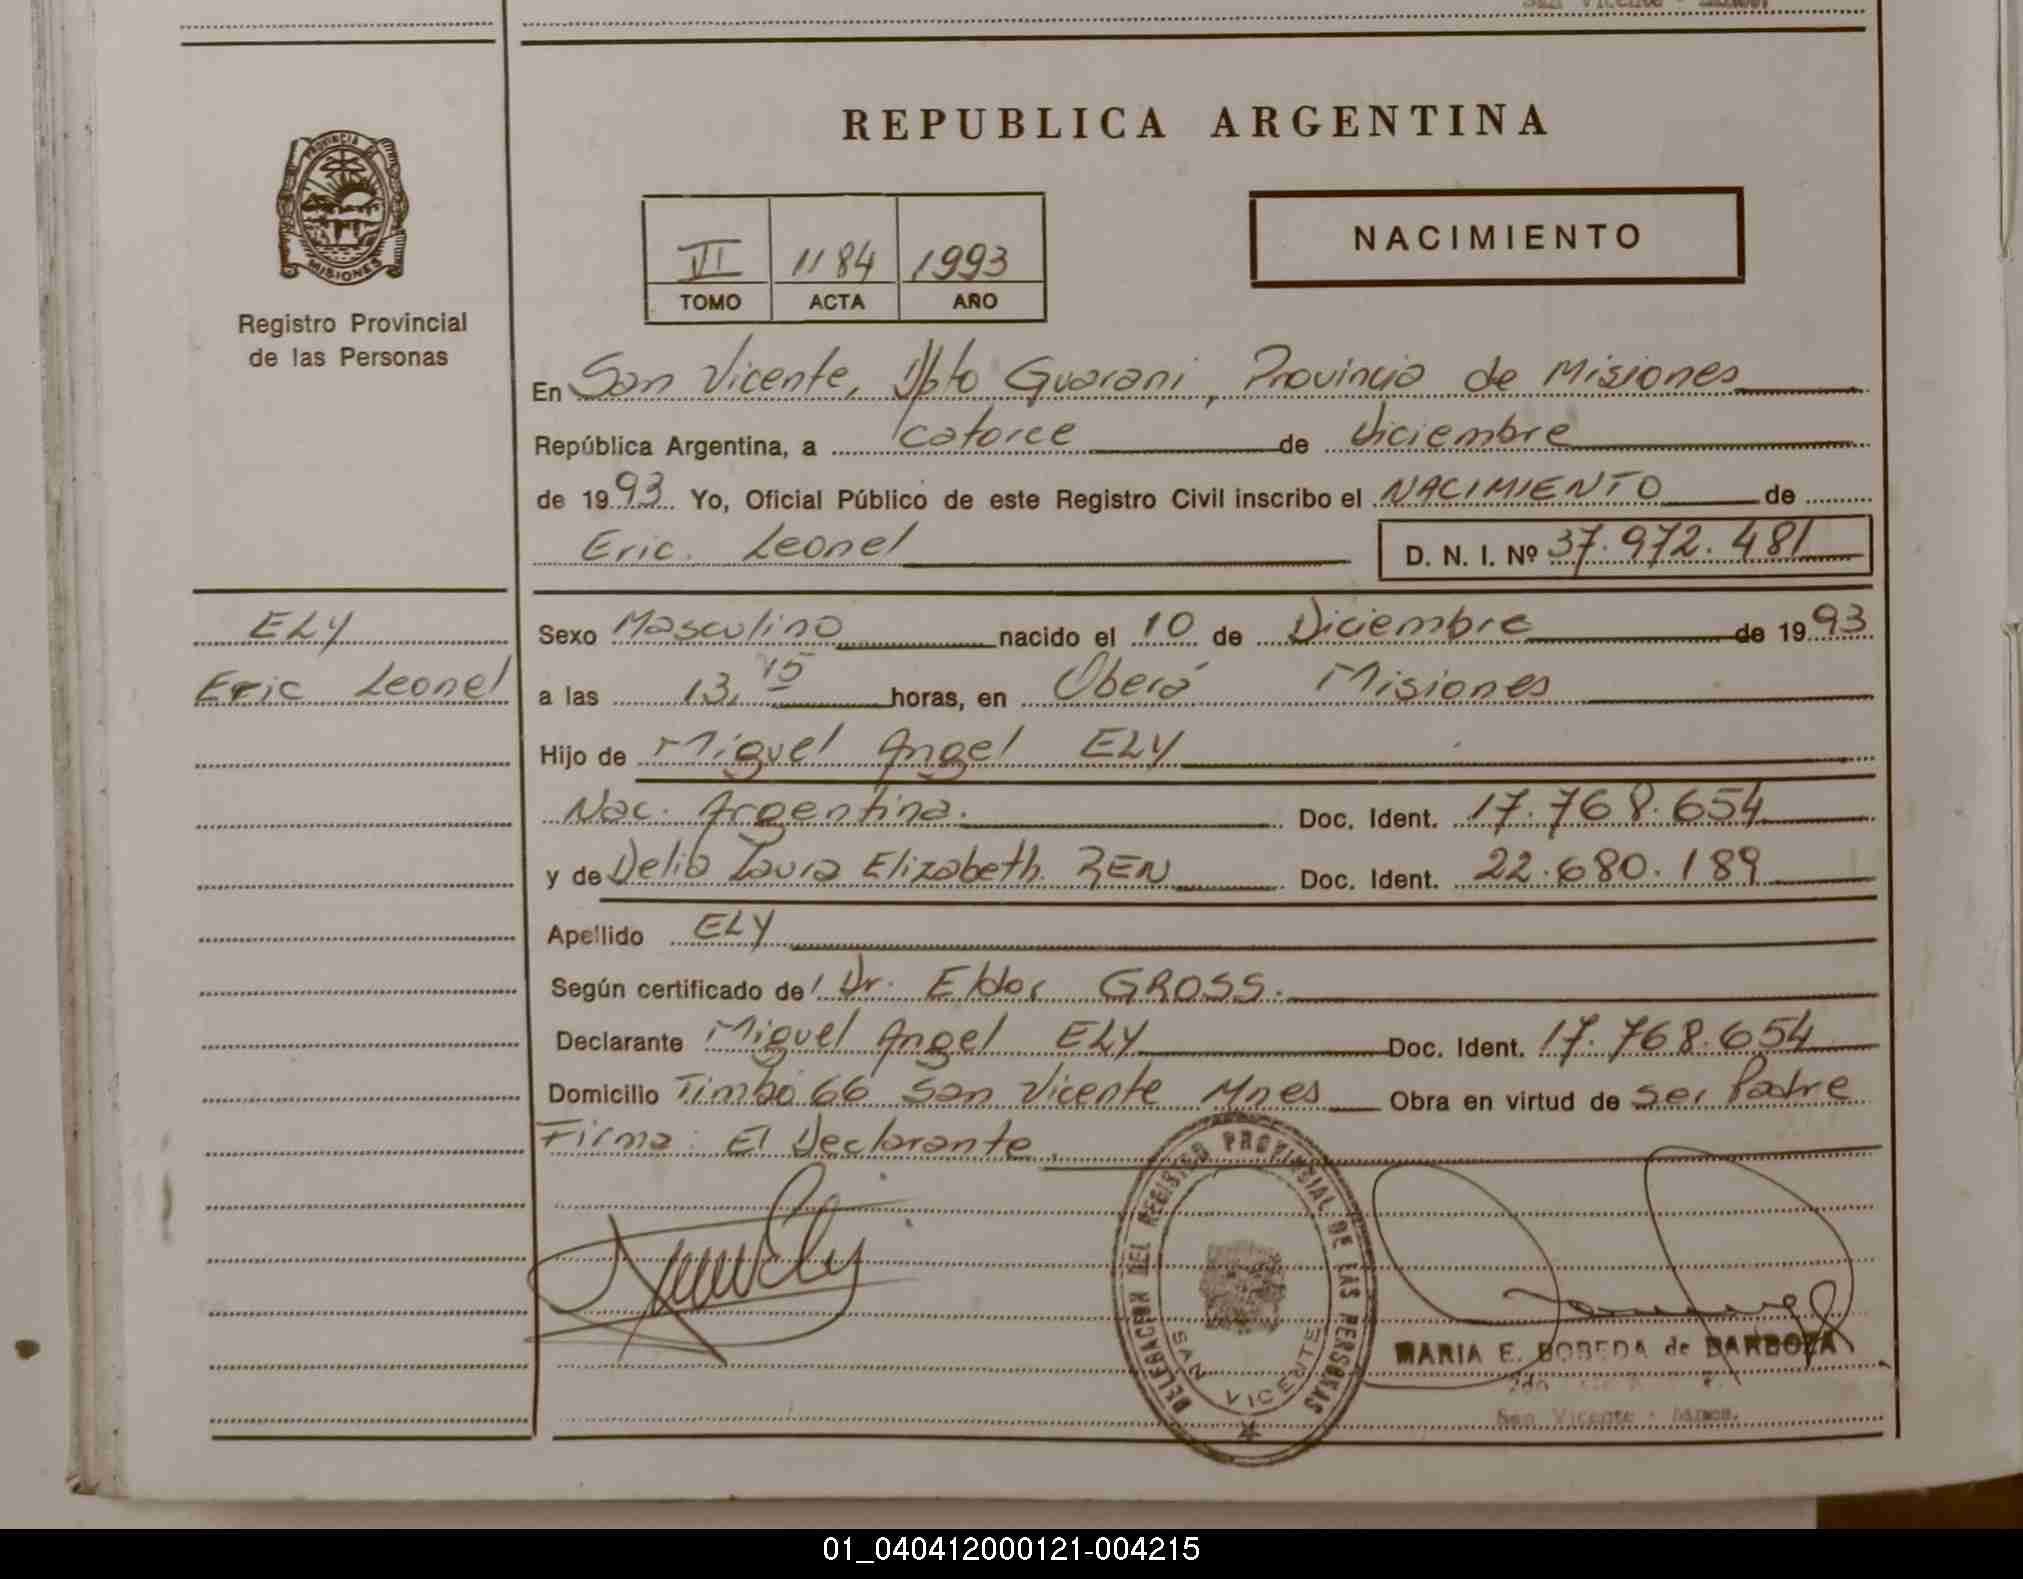 REPUBLICA ARGENTINA
PROVINCIA DE
MISIONES
Registro Provincial
de las Personas
NACIMIENTO
VI 1184 1993
TOMO ACTA AÑO
En San Vicente, Dpto Guarani, Provincia de Misiones
República Argentina, a catorce de diciembre
de 1993 Yo, Oficial Público de este Registro Civil inscribo el NACIMIENTO de
Eric Leonel D. N. I. Nº 37.972.481
ELY
Eric Leonel
Sexo Masculino nacido el 10 de Diciembre de 1993
a las 13,15 horas, en Oberá Misiones
Hijo de Miguel Angel ELY
Nac. Argentina. Doc. Ident. 17.768.654
y de Delia Laura Elizabeth REN Doc. Ident. 22.680.189
Apellido ELY
Según certificado de Dr. Eldor GROSS.
Declarante Miguel Angel ELY Doc. Ident. 17.768.654
Domicilio Timbó 66 San Vicente Mnes Obra en virtud de ser Padre
Firma: El Declarante.
DELEGACION DEL REGISTRO PROVINSIAL DE LAS PERSONAS
SAN VICENTE
MARIA E. BOBEDA de BARBOZA
San Vicente - Mnes.
01_040412000121-004215